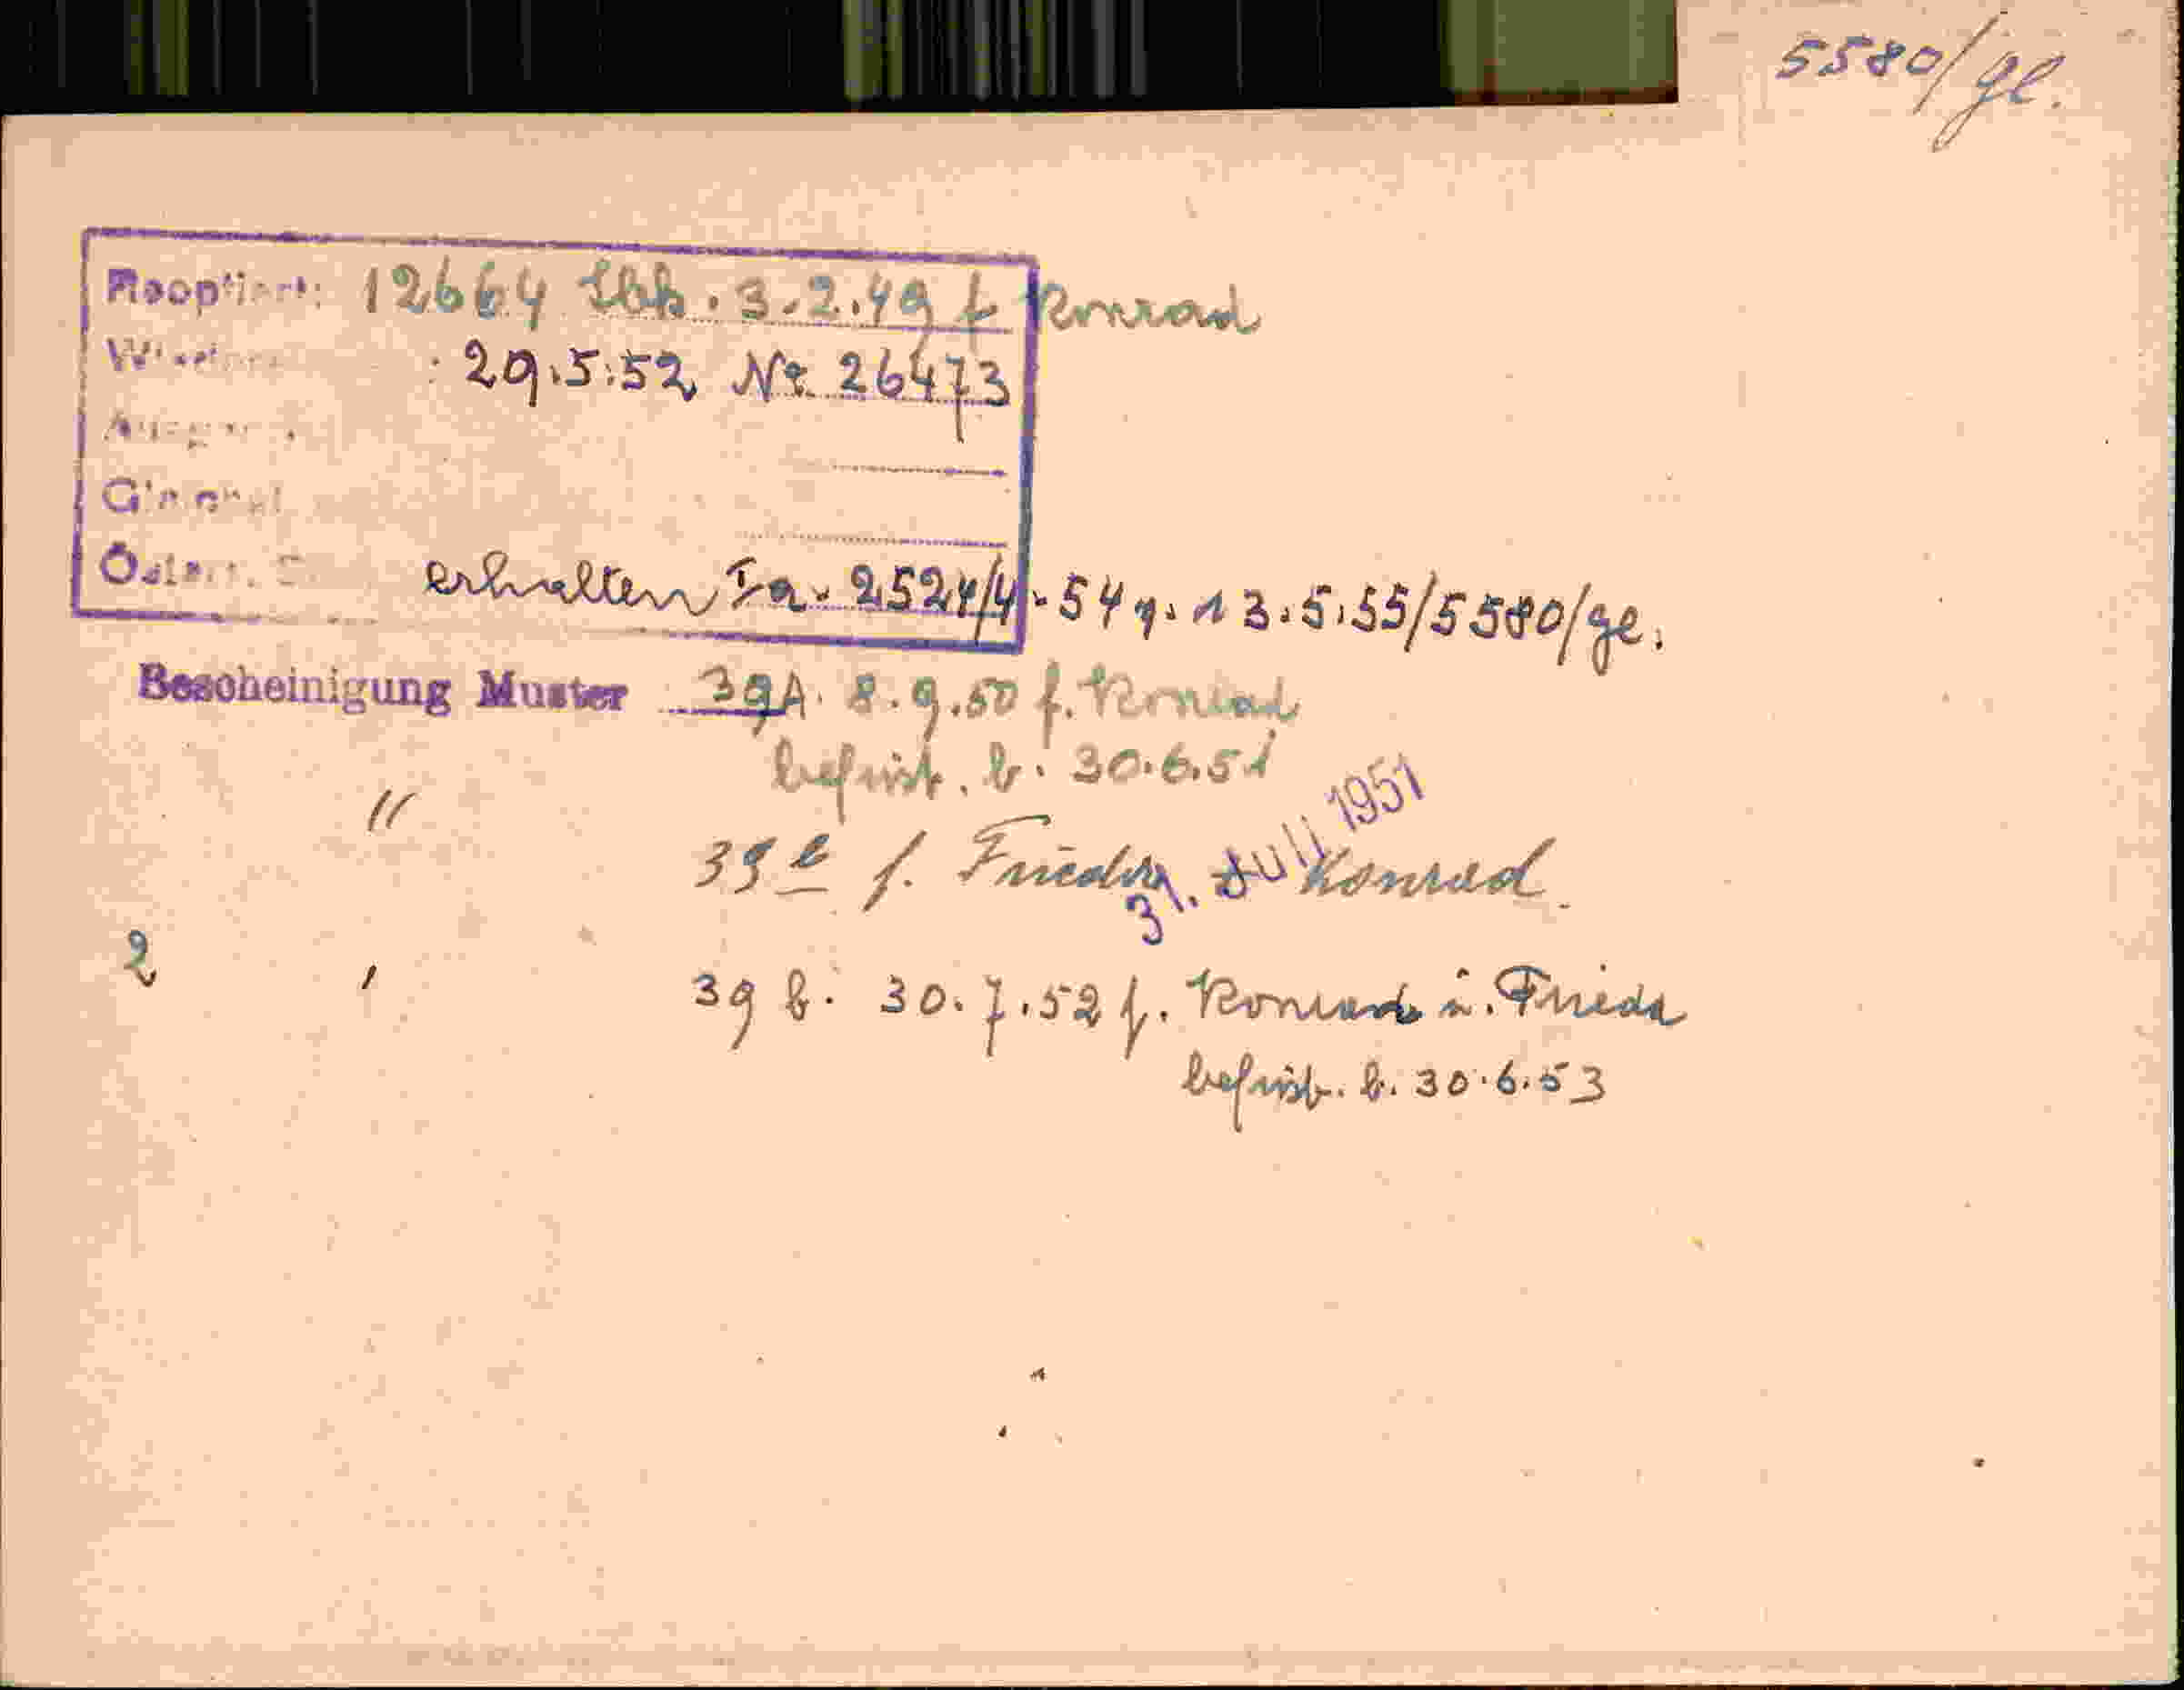 5580/ge.
Reoptiert: 12664 Ibk. 3.2.49 f. Konrad
: 29.5.52 Nr. 26473
erhalten Ia-2524/4-54 v. 13.5.55/5580/ge.
Bescheinigung Muster 39A. 8.9.50 f. Konrad
befrist. b. 30.6.51
" 39b f. Frieda, Konrad
31. JULI 1951
2 " 39 b. 30.7.52 f. Konrad u. Frieda
befrist. b. 30.6.53